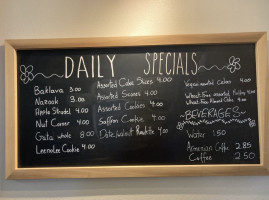 DAILY SPECIALS
Baklava 3.00
Nazook 3.00
Apple Strudel 4.00
Nut Corner 4.00
Gata whole 8.00
Leenolee Cookie 4.00
Assorted Cake Slices 4.00
Assorted Scones 4.00
Assorted Cookies 4.00
Saffron Cookie 4.00
Date/walnut 4.00
Vegan walnut cakes 4.00
Wheat-Free assorted 4.00
Wheat-Free Cake 4.00
~BEVERAGES~
Water 1.50
Armenian Coffee 2.85
Coffee 2.50